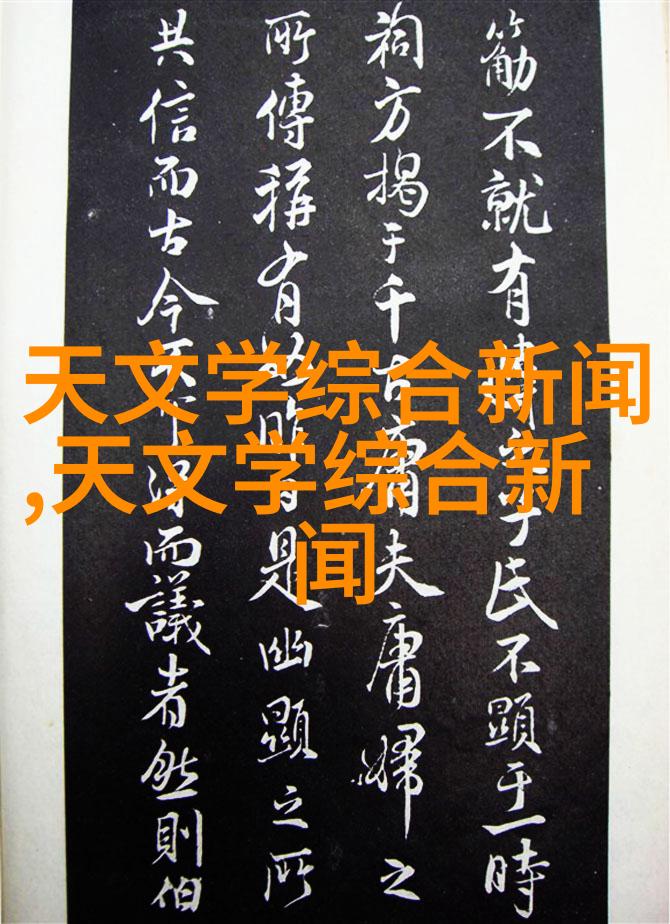 不就有于氏不顯于一時
祠方揭于千古庸夫庸婦之
所傳稱有是幽顯之所
共信而古今天下得而議者然則伯
天文学综合新闻
,天文学综合新
闻